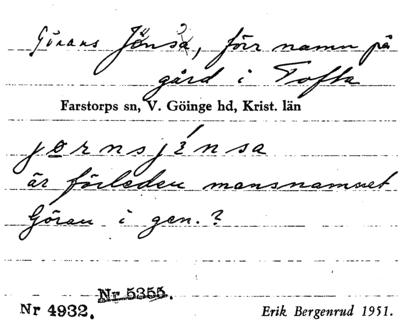 Görans Jönsa, förr namn på
gård i Tofta
Farstorps sn, V. Göinge hd, Krist. län
jørnsjénsa
är förleden mansnamnet
Göran i gen.?
Nr 5355.
Nr 4932. Erik Bergenrud 1951.